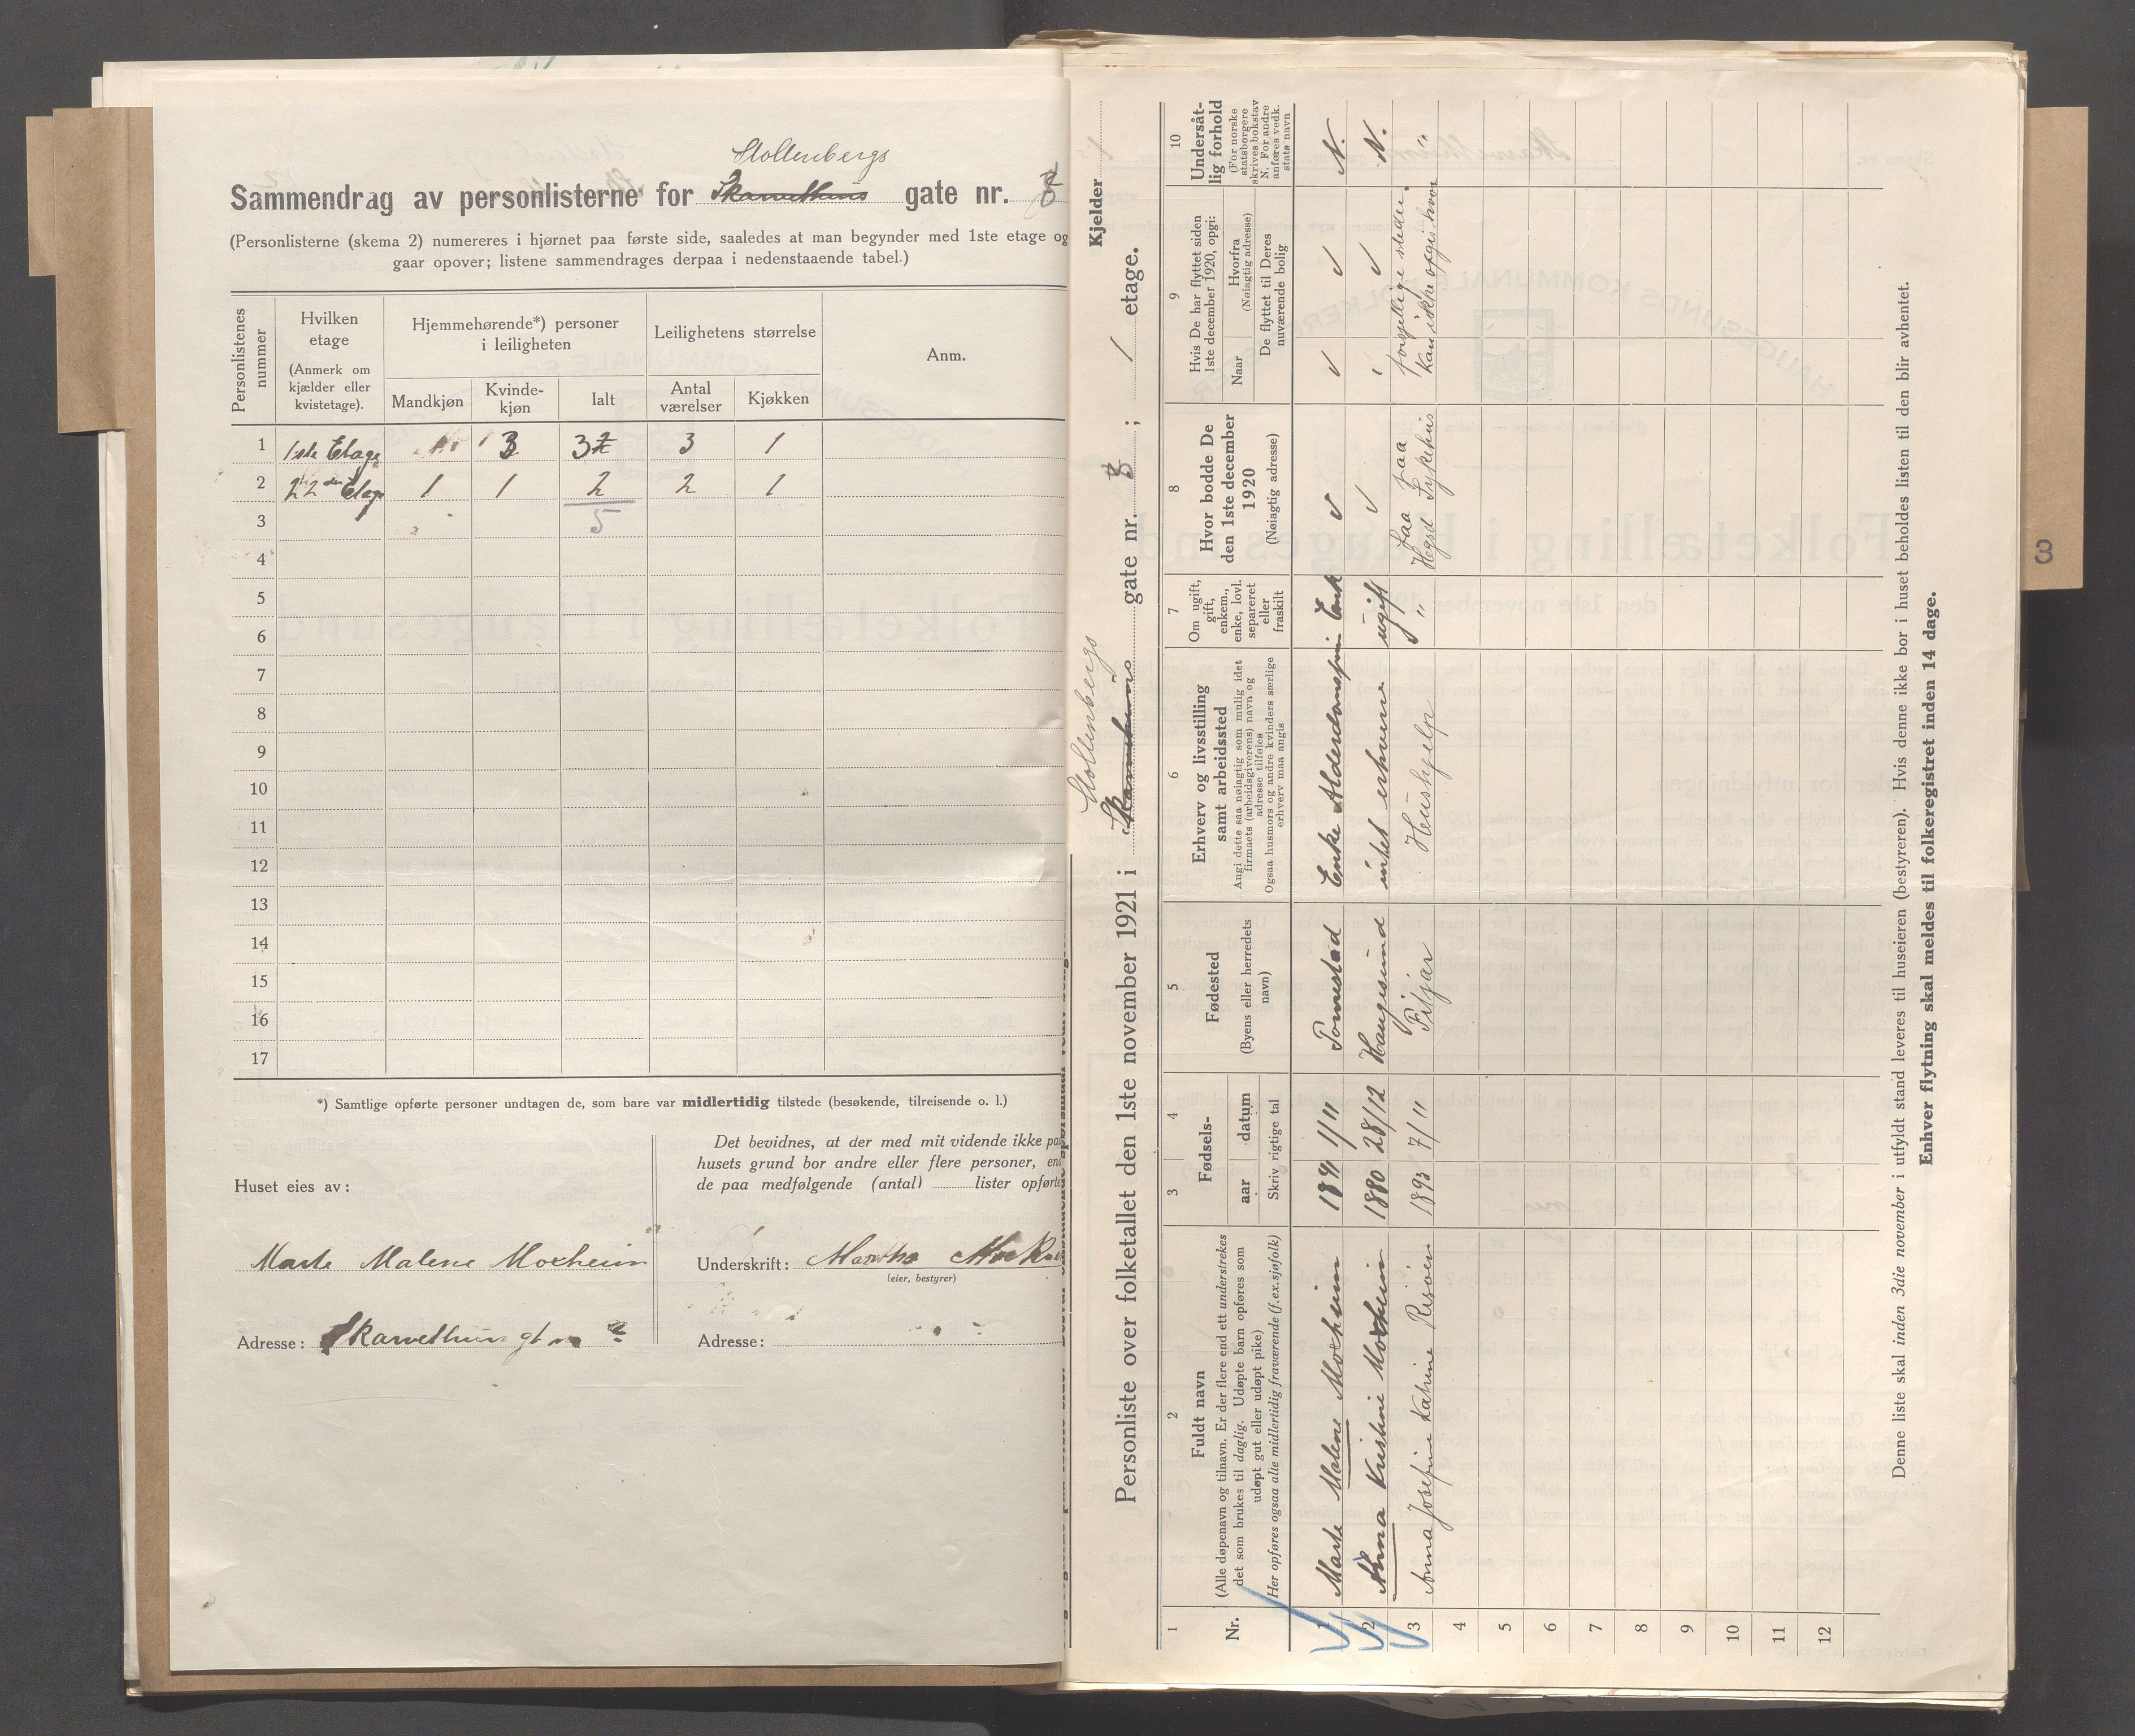 Stollenbergs
Sammendrag av personlisterne for Skarvethuns gate nr. 8
(Personlisterne (skema 2) numereres i hjørnet paa første side, saaledes at man begynder med 1ste etage og
gaar opover; listene sammendrages derpaa i nedenstaaende tabel.)
Personlistenes nummer
Hvilken etage
(Anmerk om kjælder eller kvistetage).
Hjemmehørende*) personer i leiligheten
Leilighetens størrelse
Anm.
Mandkjøn
Kvindekjøn
Ialt
Antal værelser
Kjøkken
1 1ste Etage 3 3 3 1
2 2den Etage 1 1 2 2 1
3 5
4
5
6
7
8
9
10
11
12
13
14
15
16
17
*) Samtlige opførte personer undtagen de, som bare var midlertidig tilstede (besøkende, tilreisende o. l.)
Huset eies av:
Marte Malene Moxheim
Adresse: Skarvethuns gt
Det bevidnes, at der med mit vidende ikke paa
husets grund bor andre eller flere personer, en
de paa medfølgende (antal) lister opførte
Underskrift: Martha
(eier, bestyrer)
Adresse:
Kjelder
Stollenbergs
Personliste over folketallet den 1ste november 1921 i Skarvethuns gate nr. 8 ; 1 etage.
1
Nr.
2
Fuldt navn
(Alle døpenavn og tilnavn. Er der flere end ett understrekes
det som brukes til daglig. Udøpte barn opføres som
udøpt gut eller udøpt pike)
Her opføres ogsaa alle midlertidig fraværende (f.ex.sjøfolk)
3 4
Fødsels-
aar datum
Skriv rigtige tal
5
Fødested
(Byens eller herredets navn)
6
Erhverv og livsstilling
samt arbeidssted
Angi dette saa nøiagtig som mulig idet
firmaets (arbeidsgiverens) navn og
adresse tilføies
Ogsaa husmors og andre kvinders særlige
erhverv maa angis
7
Om ugift, gift, enkem., enke, lovl. separeret eller fraskilt
8
Hvor bodde De
den 1ste december
1920
(Nøiagtig adresse)
9
Hvis De har flyttet siden
1ste december 1920, opgi:
Naar
Hvorfra
(Nøiagtig adresse)
De flyttet til Deres
nuværende bolig
10
Undersåt-
lig forhold
(For norske
statsborgere
skrives bokstav
N. For andre
anføres vedk.
stats navn
1 Marte Malene Moxheim 1/11 Enke Alderdomsfm Enk N.
2 Anna Kristine Moxheim 1880 28/12 Haugesund intet erhverv ugift N.
3 Anna Josefine Katrine Risøen 1893 7/11 Fitjar Hushjelp " Laa paa Hgsd Sykehus forsjellige steder. Kan ikke opgis hvor "
4
5
6
7
8
9
10
11
12
Denne liste skal inden 3die november i utfyldt stand leveres til huseieren (bestyreren). Hvis denne ikke bor i huset beholdes listen til den blir avhentet.
Enhver flytning skal meldes til folkeregistret inden 14 dage.
3